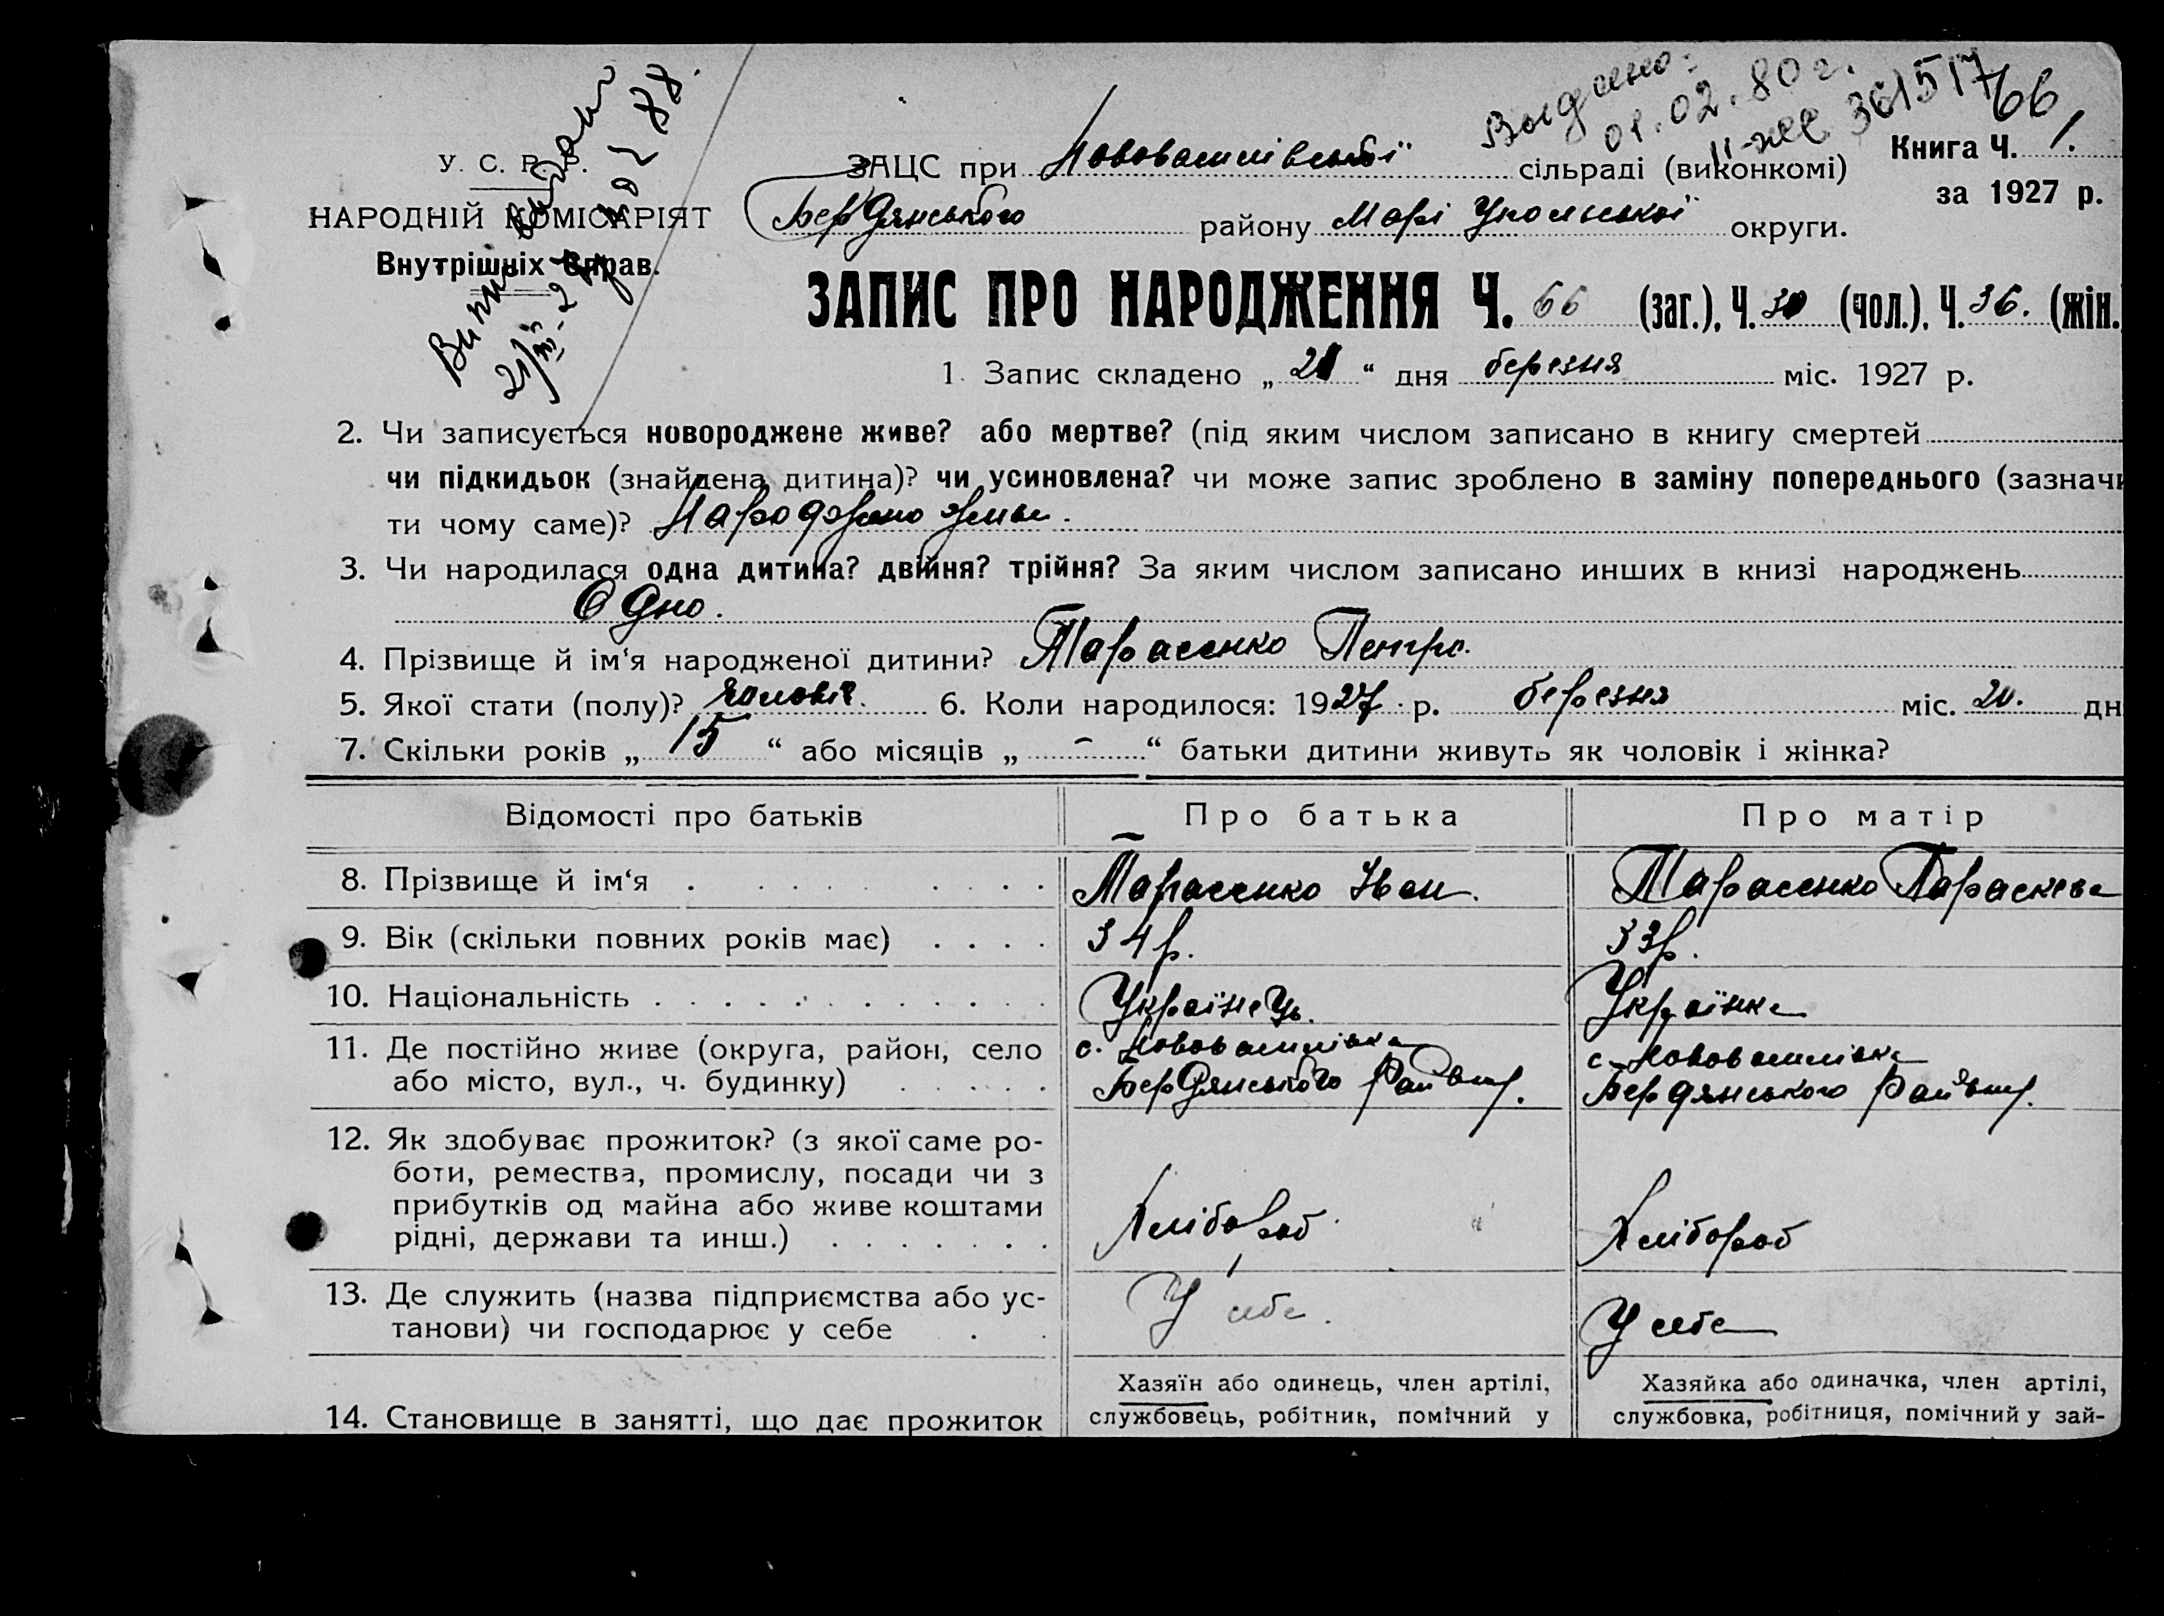 Выдано:
01.02.80 г.
II-жс 361517
66
У. С. Р. Р.
НАРОДНІЙ КОМІСАРІЯТ
Внутрішніх Справ.
ЗАЦС при Нововасилівської сільраді (виконкомі)
Книга Ч. 1.
за 1927 р.
Бердянського району Маріупольської округи.
ЗАПИС ПРО НАРОДЖЕННЯ Ч. 66 (заг.), Ч. 30 (чол.), Ч. 36. (жін.
1. Запис складено „ 21 “ дня березня міс. 1927 р.
2. Чи записується новороджене живе? або мертве? (під яким числом записано в книгу смертей
чи підкидьок (знайдена дитина)? чи усиновлена? чи може запис зроблено в заміну попереднього (зазначи
ти чому саме)? Народжено живе.
3. Чи народилася одна дитина? двійня? трійня? За яким числом записано инших в книзі народжень
Одно.
4. Прізвище й ім‘я народженої дитини? Тарасенко Петро.
5. Якої стати (полу)? чоловіч. 6. Коли народилося: 1927 р. березня міс. 20. дн
7. Скільки років „ 15 “ або місяців „ - “ батьки дитини живуть як чоловік і жінка?
Відомості про батьків Про батька Про матір
8. Прізвище й ім‘я Тарасенко Іван. Тарасенко Параскева
9. Вік (скільки повних років має) 34 р. 33 р.
10. Національність Українець. Українка
11. Де постійно живе (округа, район, село с. Нововасилівка с. Нововасилівка
або місто, вул., ч. будинку) Бердянського Бердянського
12. Як здобуває прожиток? (з якої саме ро-
боти, ремества, промислу, посади чи з
прибутків од майна або живе коштами Хлібороб Хлібороб
рідні, держави та инш.)
13. Де служить (назва підприємства або ус- У себе. У себе
танови) чи господарює у себе
Хазяїн або одинець, член артілі, Хазяйка або одиначка, член артілі,
14. Становище в занятті, що дає прожиток службовець, робітник, помічний у службовка, робітниця, помічний у зай-